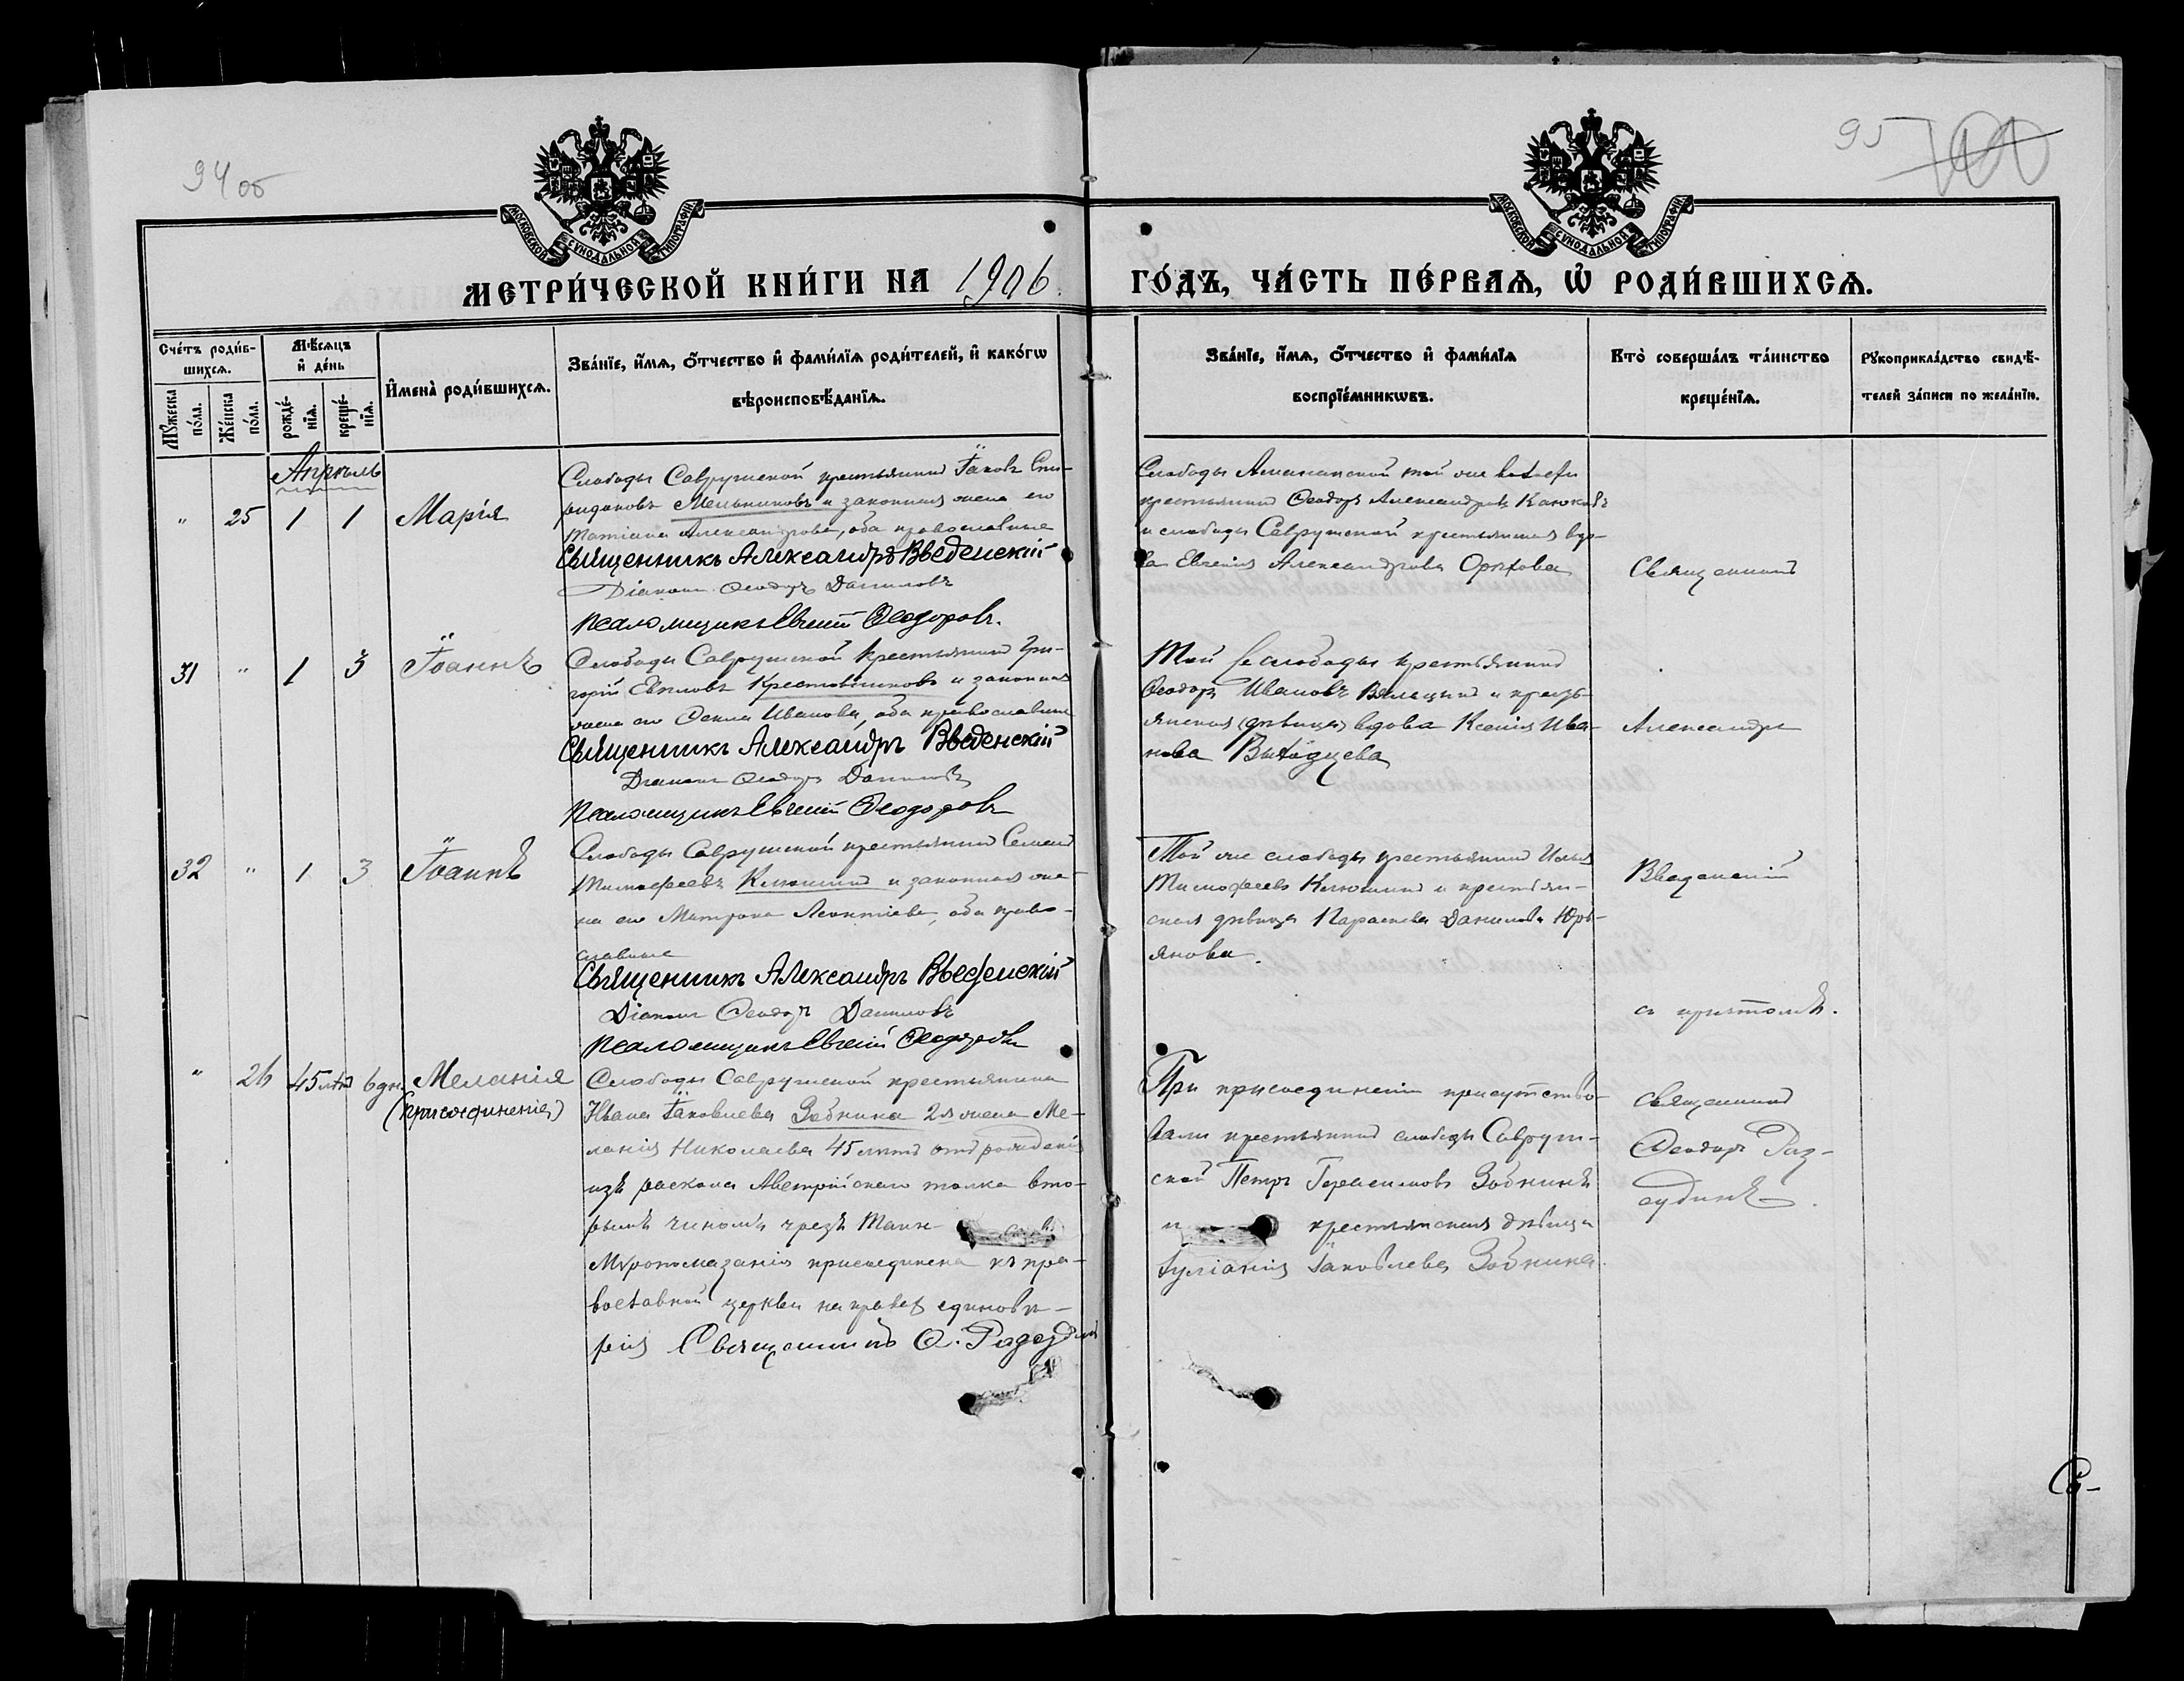 94 об
95
100
МОСКОВСКОЙ СѴНОДАЛЬНОЙ ТИПОГРАФІИ
МОСКОВСКОЙ СѴНОДАЛЬНОЙ ТИПОГРАФІИ
МЕТРИ́ЧЕСКОЙ КНИ́ГИ НА 1906
ГО́ДЪ, ЧА́СТЬ ПЕ́РВАѦ, Ѡ҆ РОДИ́ВШИХСѦ.
Сче́тъ роди́в-
шихсѧ.
Мꙋ́жеска по́ла.
Же́нска по́ла.
Мѣ́сѧцъ
и҆ де́нь
рожде́-
нїѧ.
креще́-
нїѧ.
И҆мена̀ роди́вшихсѧ.
Зва́нїе, и҆́мѧ, ѻ҆́тчество и҆ фами́лїѧ роди́телей, и҆ како́гѡ
вѣроисповѣ́данїѧ.
Зва́нїе, и҆́мѧ, ѻ҆́тчество и҆ фами́лїѧ
воспрїе́мникѡвъ.
Кто̀ соверша́лъ та́инство
креще́нїѧ.
Рꙋкоприкла́дство свидѣ́-
телей за́писи по жела́нїю.
Апрѣль
" 25 1 1 Марія
Слободы Саврушской крестьянинъ Іаковъ Спи-
ридоновъ Мельниковъ и законная жена его
Татіана Александрова, оба православные
Священникъ Александръ Введенскій
Діаконъ Ѳеодоръ Даниловъ
Псаломщикъ Евгеній Ѳеодоровъ.
Слободы той же волости
крестьянинъ Ѳеодоръ Александровъ
и слободы Саврушской крестьянская вдо-
ва Евгенія Александрова Орѣхова
Священникъ
31 " 1 3 Іоаннъ
Слободы Саврушской крестьянинъ Гри-
горій Евловъ Крестовниковъ и законная
жена его Ѳекла Иванова, оба православные
Священникъ Александръ Введенскій
Діаконъ Ѳеодоръ Даниловъ
Псаломщикъ Евгеній Ѳеодоровъ
Той же слободы крестьянинъ
Ѳеодоръ Ивановъ и кресть-
янская (дѣвица) вдова Ксенія Ива-
нова Выходцева
Александръ
32 " 1 3 Іоаннъ
Слободы Саврушской крестьянинъ Семенъ
Тимофеевъ Клюшинъ и законная же-
на его Матрона Леонтіева, оба право-
славные
Священникъ Александръ Введенскій
Діаконъ Ѳеодоръ Даниловъ
Псаломщикъ Евгеній Ѳеодоровъ
Той же слободы крестьянинъ Илья
Тимофеевъ Клюшинъ и крестьян-
ская дѣвица Параскева Данилова Юрь-
янова.
Введенскій
съ причтомъ.
" 26 45 лѣтъ 6 дн. Меланія
(присоединеніе)
Слободы Саврушской крестьянина
Ивана Іаковлева Зобнина 2я жена Ме-
ланія Николаева 45 лѣтъ отъ рожденія
изъ раскола Австрійскаго толка вто-
рымъ чиномъ чрезъ Таин-
Мѵропомазанія присоединена къ пра-
вославной церкви на правахъ единовѣ-
рія Священникъ Ѳ.
При присоединеніи присутство-
вали крестьянинъ слободы Савруш-
ской Петръ Герасимовъ Зобнинъ
и крестьянская дѣвица
Іуліанія Іаковлева Зобнина.
священникъ
Ѳеодоръ Раз-
судинъ.
Св-